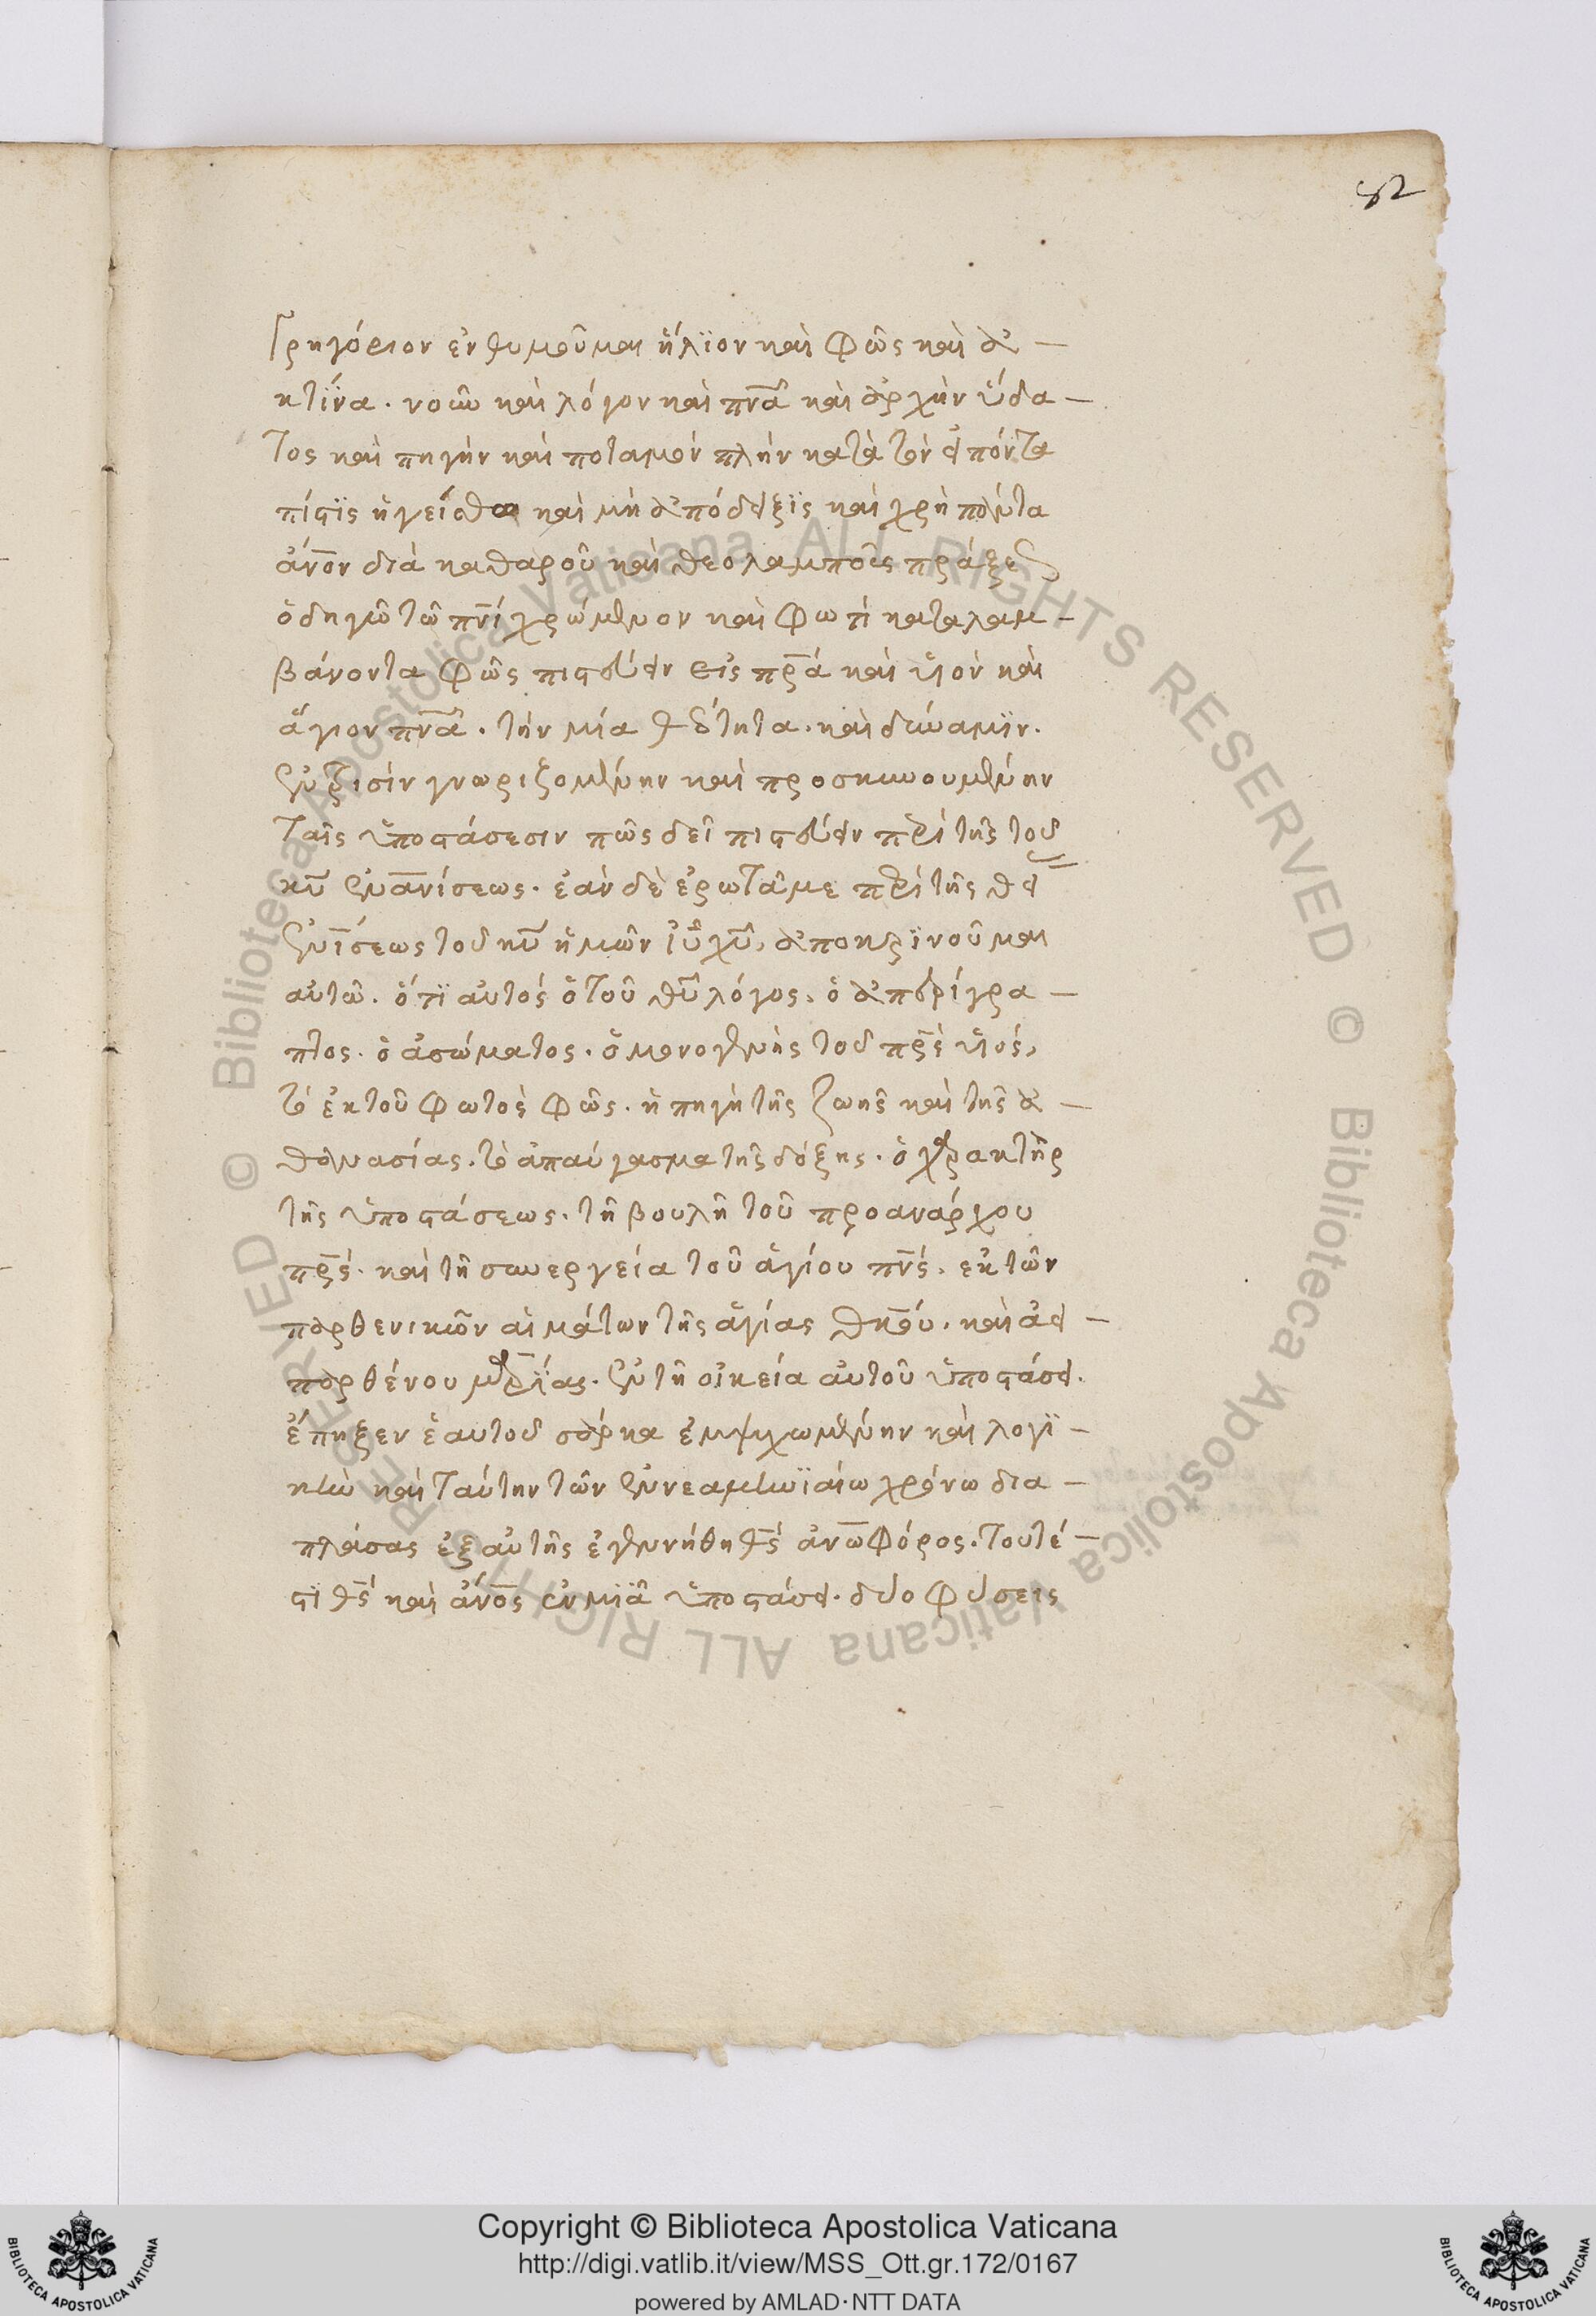 82
Γρηγόριον ἐνθυμοῦμαι ἥλϊον καὶ φῶς καὶ ἀ
κτῖνα. νοῶ καὶ λόγον καὶ πνᾶ καὶ ἀρχὴν ὕδα
τος καὶ πηγὴν καὶ ποταμόν πλὴν κατὰ τὸν εἰπόντα
πίστϊς ἡγείσθω καὶ μὴ ἀπόδειξϊς καὶ χρὴ πάντα
ἄνον διὰ καθαροῦ καὶ θεολαμποῦς πράξεως
ὁδηγῶ τῶ πνί χρώμενον καὶ φωτὶ καταλαμ
βάνοντα φῶς πιστεύειν εἰς πρα καὶ υἱὸν καὶ
ἅγιον πνα. τὴν μία θεότητα. καὶ δύναμϊν.
ἐν τρισὶν γνωριζομένην καὶ προσκυνουμένην
ταῖς ὑποστάσεσιν πῶς δεῖ πιστεύειν περὶ τῆς τοῦ
κυ ἐνανίσεως. ἐὰν δὲ ἐρωτᾶ με περὶ τῆς θεί
τοῦ κυ ἡμῶν ἰυ χυ, ἀποκρϊνοῦμαι
αὐτῶ. ὅτϊ αὐτὸς ὁ τοῦ θυ λόγος. ὁ ἀπερίγρα
πτος. ὁ ἀσώματος. ὁ μονογενὴς τοῦ πρς υἱός,
τὸ ἐκ τοῦ φωτὸς φῶς. ἡ πηγὴ τῆς ζωῆς καὶ τῆς ἀ
θανασίας. τὸ ἀπαύγασμα τῆς δόξης. ὁ χαρακτὴρ
τῆς ὑποστάσεως. τῆ βουλῆ τοῦ προανάρχου
πρς. καὶ τῆ συνεργεία τοῦ ἁγίου πνς. ἐκ τῶν
παρθενικῶν αἱμάτων τῆς ἁγίας θκου. καὶ ἀει
παρθένου μαρϊας. ἐν τῆ οἰκεία αὐτοῦ ὑποστάσει.
ἔπηξεν ἑαυτοῦ σάρκα ἐμψυχωμένην καὶ λογϊ
κὴν καὶ ταύτην τῶν ἐννεαμηνϊαίω χρόνω δια
πλάσας ἐξ αὐτῆς ἐγεννήθη θς ἀνωφόρος. τουτέ
στϊ θς καὶ ἄνος ἐν μϊᾶ ὑποστάσει. δύο φύσεις
Copyright © Biblioteca Apostolica Vaticana
http://digi.vatlib.it/view/MSS_Ott.gr.172/0167
powered by AMLAD·NTT DATA
BIBLIOTECA APOSTOLICA VATICANA
BIBLIOTECA APOSTOLICA VATICANA
© Biblioteca Apostolica Vaticana ALL RIGHTS RESERVED
© Biblioteca Apostolica Vaticana ALL RIGHTS RESERVED